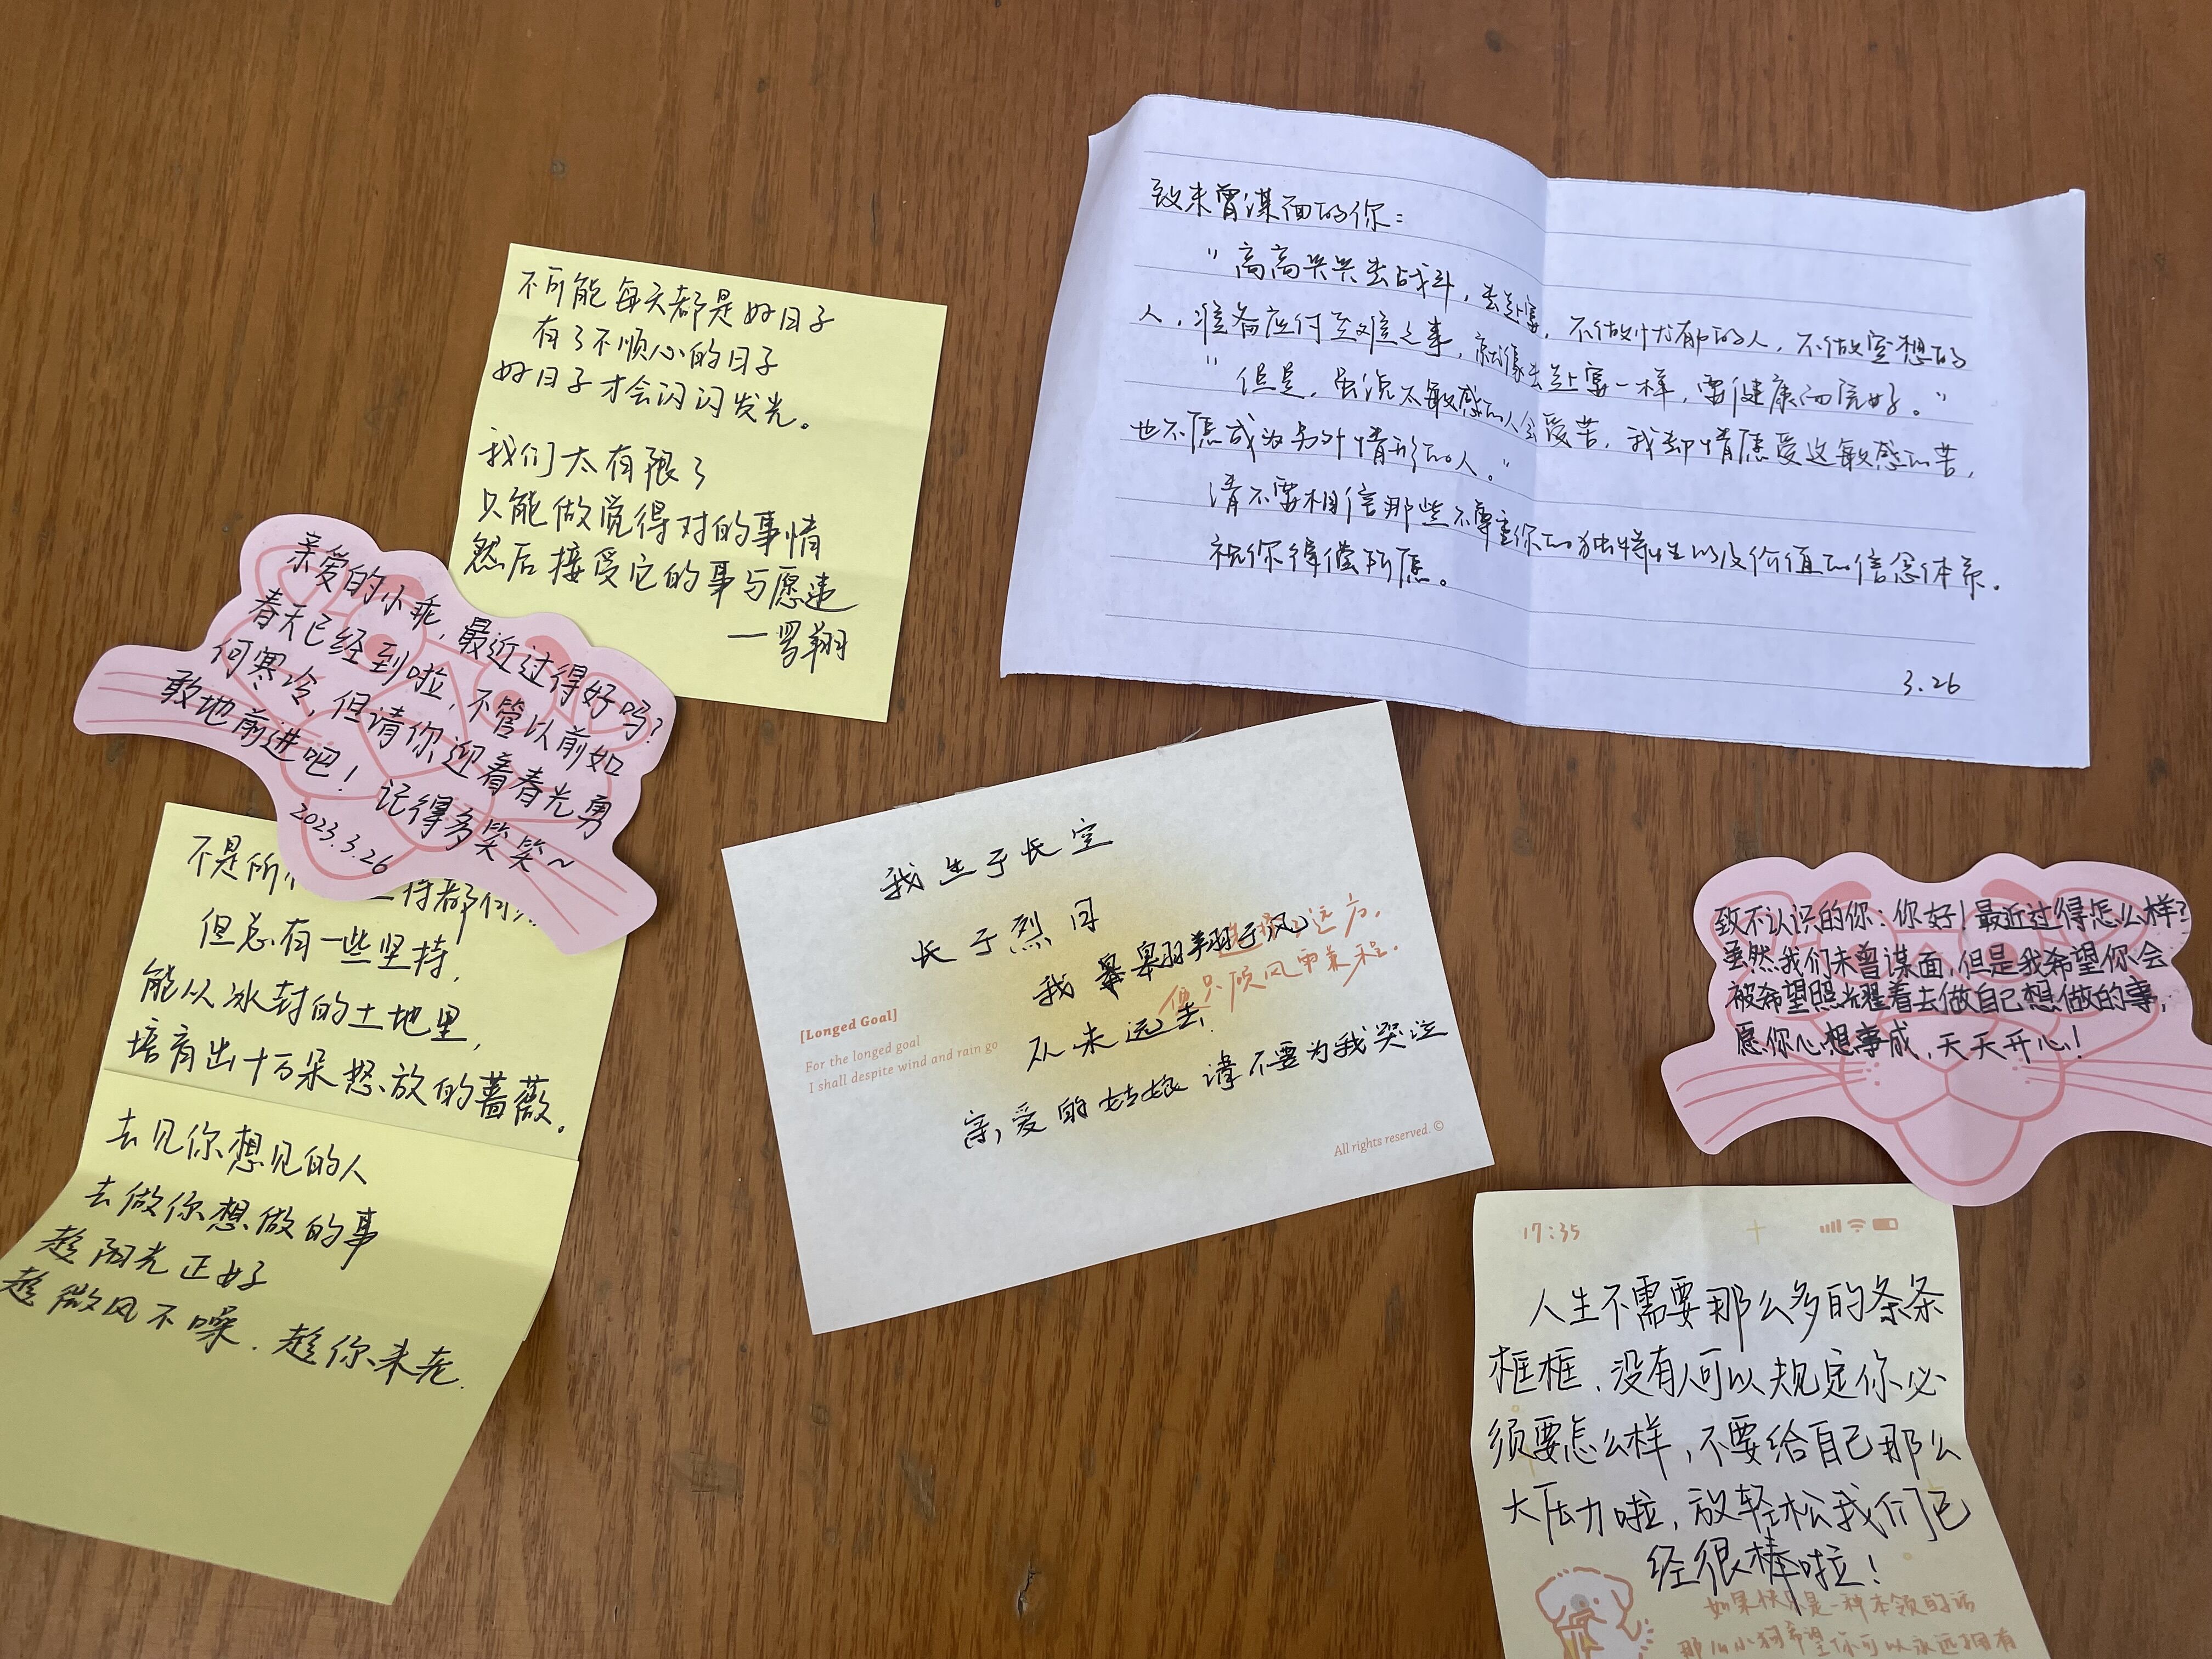 不可能每天都是好日子
有了不顺心的日子
好日子才会闪闪发光。
我们太有限了
只能做觉得对的事情
然后接受它的事与愿违
—罗翔
致未曾谋面的你:
"高高兴兴去战斗,去赴宴,不做忧郁的人,不做空想的
人,准备应付至难之事,就像去赴宴一样,要健康而完好。"
"但是,虽说太敏感的人会受苦,我却情愿受这敏感的苦,
也不愿成为另外情形的人。"
请不要相信那些不尊重你的独特性以及价值的信念体系。
祝你得偿所愿。
3.26
亲爱的小乖,最近过得好吗?
春天已经到啦,不管以前如
何寒冷,但请你迎着春光勇
敢地前进吧!记得多笑笑~
2023.3.26
不是所
但总有一些坚持,
能从冰封的土地里,
培育出十万朵怒放的蔷薇。
去见你想见的人
去做你想做的事
趁阳光正好
趁微风不噪.趁你未老.
我生于长空
长于烈日
我翱翔于风
从未远去.
亲爱的姑娘 请不要为我哭泣
远方,
便只顾风雨兼程。
[Longed Goal]
For the longed goal
I shall despite wind and rain go
All rights reserved. ©
致不认识的你:你好!最近过得怎么样?
虽然我们未曾谋面,但是我希望你会
被希望照耀着去做自己想做的事,
愿你心想事成,天天开心!
17:35
人生不需要那么多的条条
框框,没有人可以规定你必
须要怎么样,不要给自己那么
大压力啦,放轻松我们已
经很棒啦!
如果快乐是一种本领的话
那么小狗希望你可以永远拥有